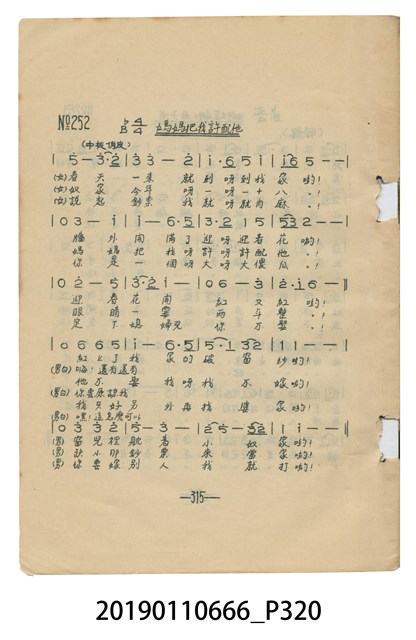 №252 ♭B 4/4 媽媽把我許配他
(中板 俏皮)
| 5 - 3·2 | 3 3 - 2 | i·6 5 i | i 6 5 - - |
(女)春天一來就到呀到我家喲!
(女)奴家今年呀一呀一十八.!
(女)說起
| 0 3 - i | i - 6·5 | 3·2 1 5 | 5 3 2 - - |
牆外開滿了迎呀迎春花喲!
媽媽把我呀許配他.!
你是一個呀大呀大傻瓜.!
| 0 2 - 5 | 3·2 i - | 0 6 - 3 | 2·i 6 - |
迎春花開紅又紅喲!
眼睛一
足下媳婦兒你不娶.!
| 0 6 6 5 | i - 6·5 | 5·1 3 2 | 1 1 - - |
紅上了我家的破窗紗喲!
(男白)嗨!還有還有
他不要我呀我不嫁喲!
(男白)你要原諒我
我只好另外再找婆家喲!
(男白)嘿!這怎麼可以
| 0 3 3 2 | 5 - 3 - | 2 5 - 5 2 | 1 - - |
(男)窗兒裡躭着小奴家喲!
(男)缺小那鈔票來當家喲!
(男)你要嫁別人我就打喲!
—315—
20190110666_P320